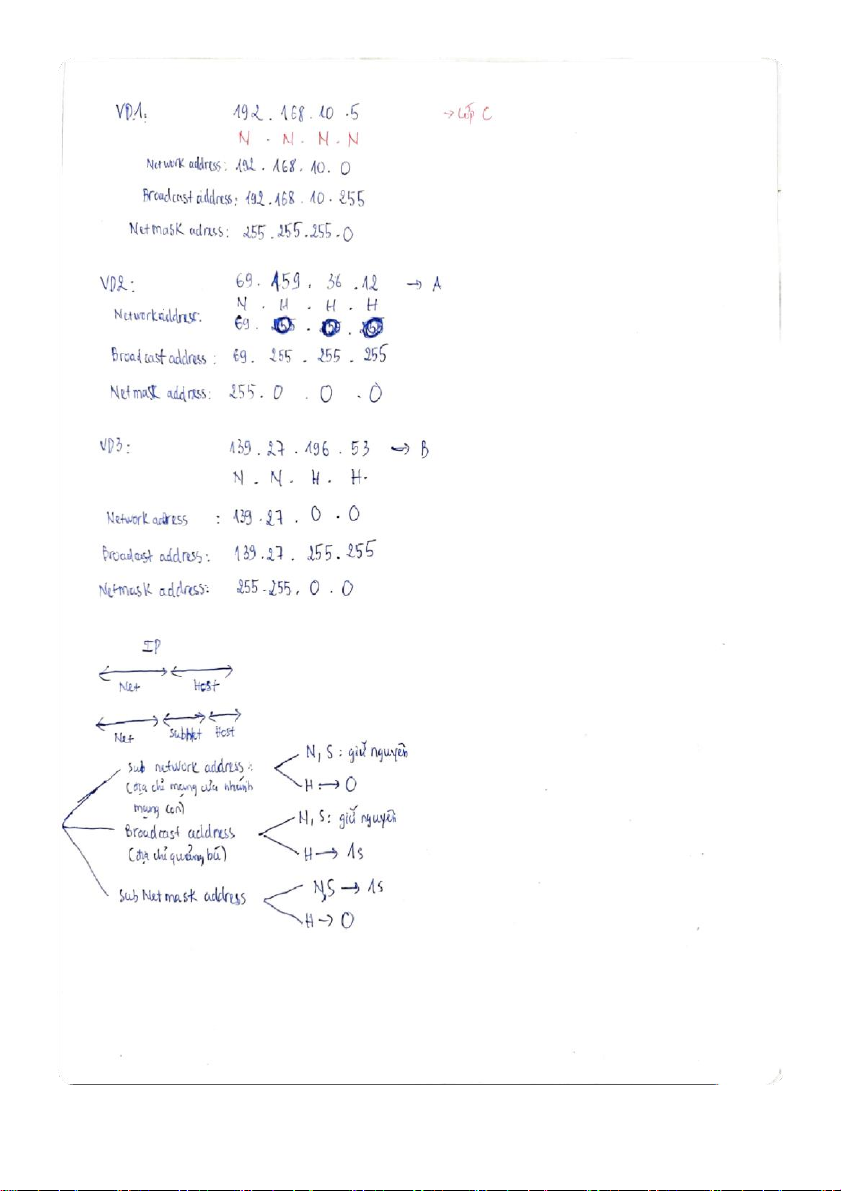 VD1: 192 . 168 . 10 . 5 → Lớp C
N . N . N . N
Network address: 192 . 168 . 10 . 0
Broadcast address: 192.168 . 10 . 255
Netmask adress: 255 . 255 . 255 . 0
VD2: 69 . 159 . 36 . 12 → A
N . H . H . H
Network address: 69 . 0 . 0 . 0
Broadcast address : 69 . 255 . 255 . 255
Netmask address: 255 . 0 . 0 . 0
VD3: 139 . 27 . 196 . 53 → B
N . N . H . H.
Network address : 139 . 27 . 0 . 0
Broadcast address: 139 . 27 . 255 . 255
Netmask address: 255 . 255 . 0 . 0
IP
Net Host
Net Subnet Host
N, S : giữ nguyên
Sub network address :
(địa chỉ mạng của nhánh
H : → 0
mạng con)
N, S : giữ nguyên
Broadcast address
(địa chỉ quảng bá)
H → 1s
N,S → 1s
Sub Netmask address
H → 0